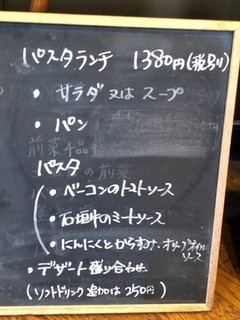 パスタランチ 1380円(税別)
・サラダ 又は スープ
・パン
前菜4品
パスタ の前菜
・ベーコンのトマトソース
・石垣牛のミートソース
・にんにくとからすみ、オリーブオイル
ソース
・デザート盛り合わせ
(ソフトドリンク 追加は 250円)